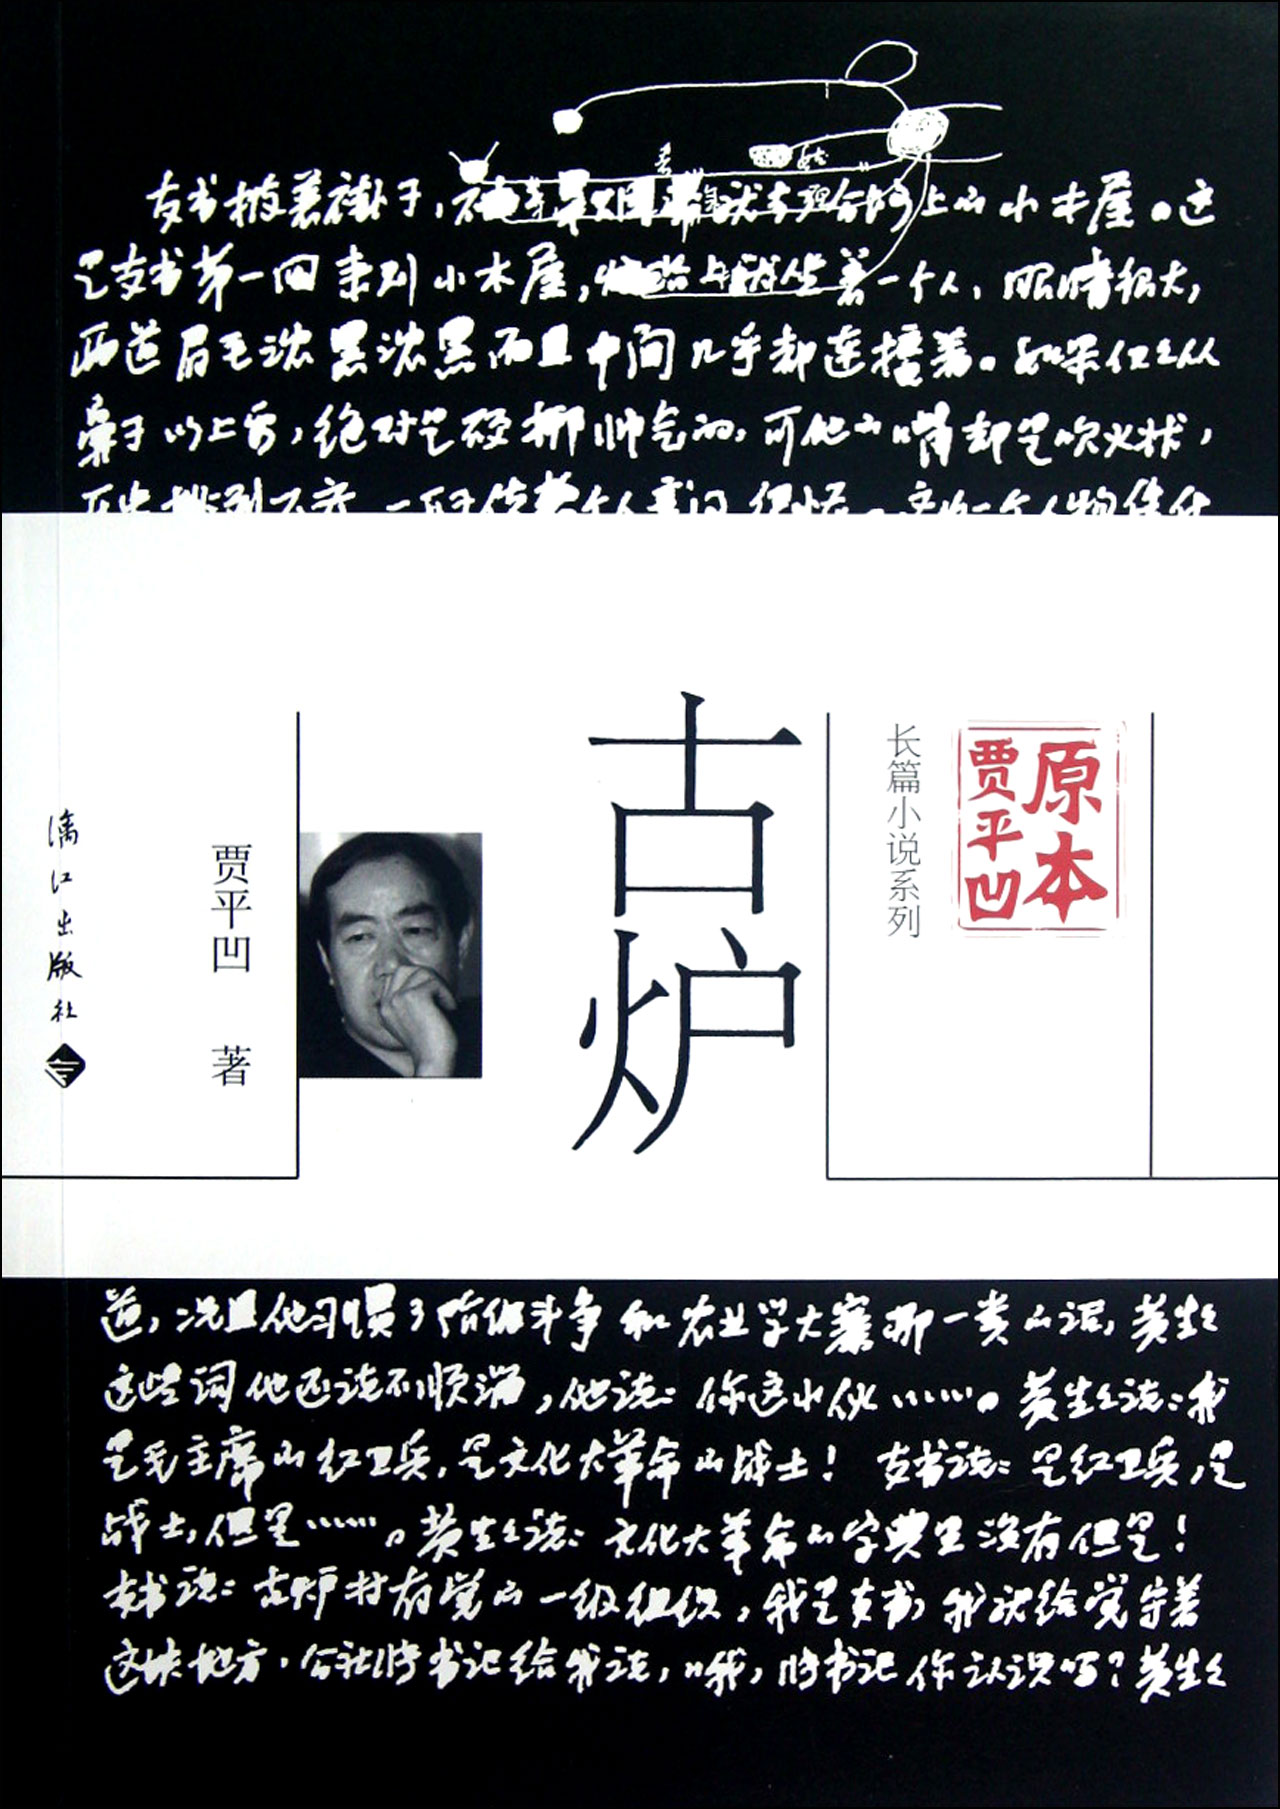 支书披着褂子，
上山小木屋。这
是支书第一回来到小木屋，
着一个人，眼睛很大，
两道眉毛浓黑浓黑而且中间几乎都连接着。如果仅仅从
鼻子以上看，绝对是硬梆帅气的，可他的嘴却是吹火状，
原本
贾平凹
长篇小说系列
古炉
贾平凹 著
漓江出版社
道，况且他习惯了阶级斗争和农业学大寨那一类的词，黄生生
这些词他还说不顺溜，他说：你这小伙……。黄生生说：我
是毛主席的红卫兵，是文化大革命的战士！支书说：是红卫兵，是
战士，但是……。黄生生说：文化大革命的字典里没有但是！
支书说：古炉村有党的一级组织，我是支书，我就给党守着
这块地方，公社张书记给我说，哦，张书记你认识吗？黄生生